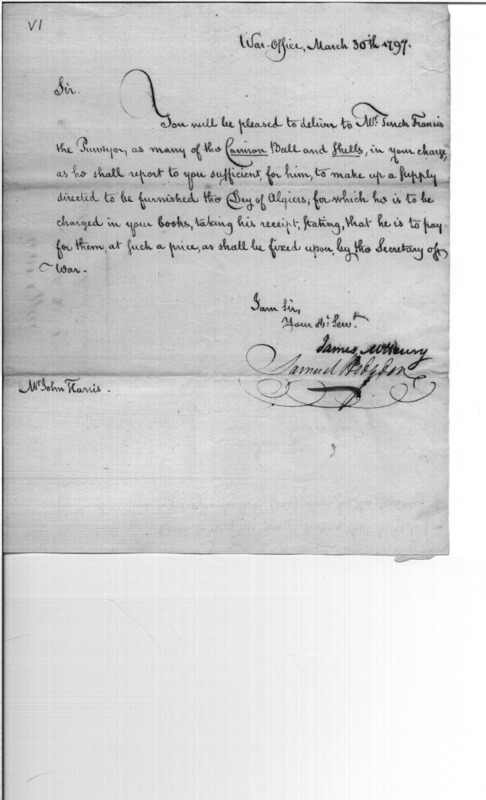 VI
War-Office, March 30th 1797.
Sir.
You will be pleased to deliver to Mr. Tench Francis
the Purveyor, as many of the Cannon Ball and Shells, in your charge,
as he shall report to you sufficient, for him, to make up a supply
directed to be furnished the Dey of Algiers; for which he is to be
charged in your books, taking his receipt, stating, that he is to pay
for them, at such a price, as shall be fixed upon, by the Secretary of
War.
I am Sir,
Your Ob. Serv.t
James McHenry
Samuel Hodgdon
Mr. John Harris.